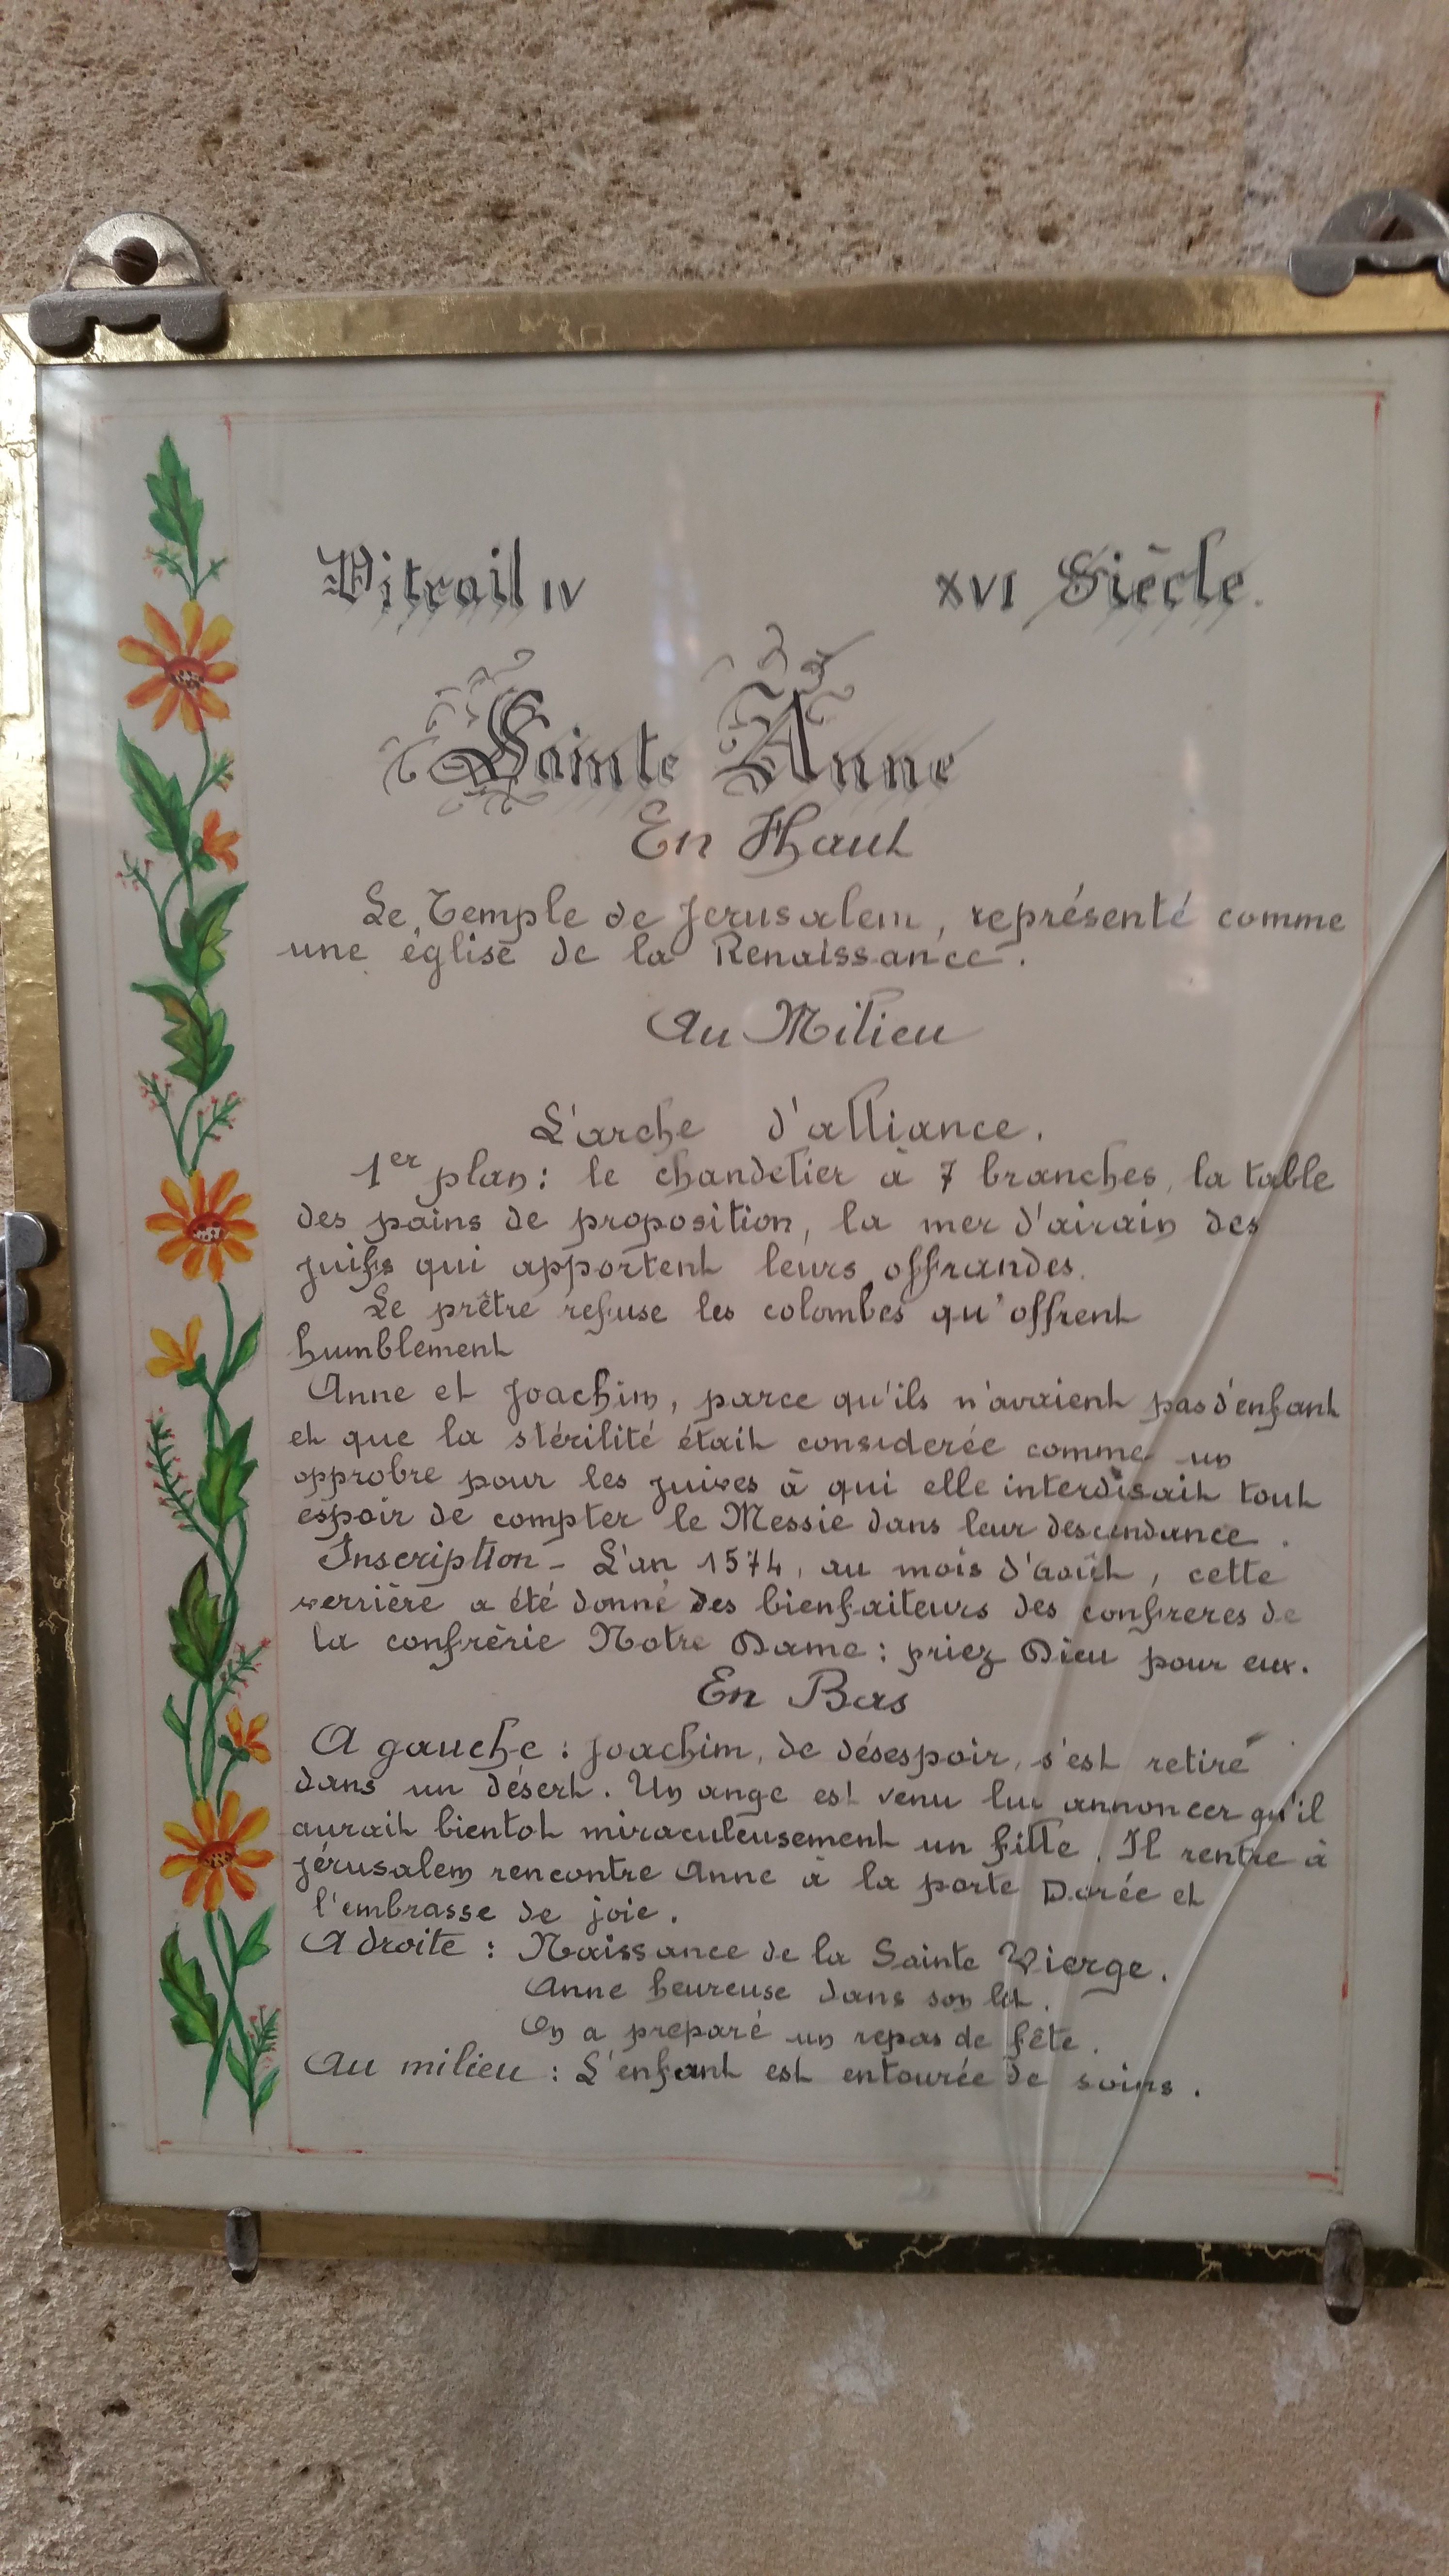 Vitrail IV XVI Siècle.
Sainte Anne
En Haut
Le Temple de Jerusalem, représenté comme
une église de la Renaissance.
Au Milieu
L'arche d'alliance.
1er plan: le chandelier à 7 branches, la table
des pains de proposition, la mer d'airain des
juifs qui apportent leurs offrandes.
Le prêtre refuse les colombes qu'offrent
humblement
Anne et Joachim, parce qu'ils n'avaient pas d'enfant
et que la stérilité était considerée comme un
opprobre pour les juives à qui elle interdisait tout
espoir de compter le Messie dans leur descendance.
Inscription - L'an 1574, au mois d'août, cette
verrière a été donné des bienfaiteurs des confreres de
la confrérie Notre Dame : priez Dieu pour eux.
En Bas
A gauche : Joachim, de désespoir, s'est retiré
dans un désert. Un ange est venu lui annoncer qu'il
aurait bientot miraculeusement un fille. Il rentre à
jérusalem rencontre Anne à la porte Dorée et
l'embrasse de joie.
A droite : Naissance de la Sainte Vierge.
Anne heureuse dans son lit.
On a preparé un repas de fête.
Au milieu : L'enfant est entourée de soins.